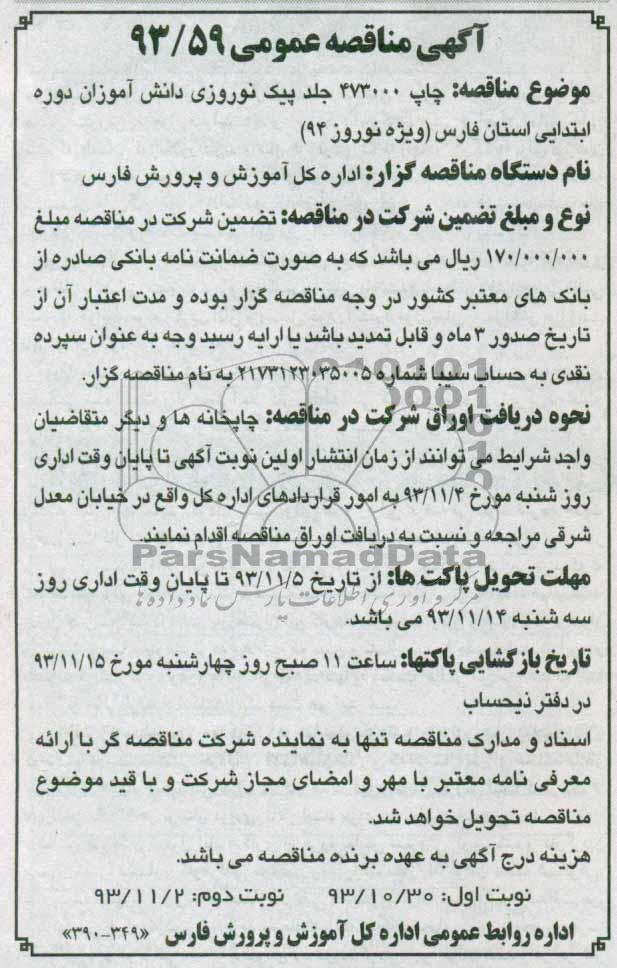 آگهی مناقصه عمومی ۹۳/۵۹
موضوع مناقصه: چاپ ۴۷۳۰۰۰ جلد پیک نوروزی دانش آموزان دوره
ابتدایی استان فارس (ویژه نوروز ۹۴)
نام دستگاه مناقصه گزار: اداره کل آموزش و پرورش فارس
نوع و مبلغ تضمین شرکت در مناقصه: تضمین شرکت در مناقصه مبلغ
۱۷۰/۰۰۰/۰۰۰ ریال می باشد که به صورت ضمانت نامه بانکی صادره از
بانک های معتبر کشور در وجه مناقصه گزار بوده و مدت اعتبار آن از
تاریخ صدور ۳ ماه و قابل تمدید باشد یا ارایه رسید وجه به عنوان سپرده
نقدی به حساب سیبا شماره ۲۱۷۳۱۲۳۰۳۵۰۰۵ به نام مناقصه گزار.
نحوه دریافت اوراق شرکت در مناقصه: چاپخانه ها و دیگر متقاضیان
واجد شرایط می توانند از زمان انتشار اولین نوبت آگهی تا پایان وقت اداری
روز شنبه مورخ ۹۳/۱۱/۴ به امور قراردادهای اداره کل واقع در خیابان معدل
شرقی مراجعه و نسبت به دریافت اوراق مناقصه اقدام نمایند.
ParsNamadData
مهلت تحویل پاکت ها: از تاریخ ۹۳/۱۱/۵ تا پایان وقت اداری روز
سه شنبه ۹۳/۱۱/۱۴ می باشد.
تاریخ بازگشایی پاکتها: ساعت ۱۱ صبح روز چهارشنبه مورخ ۹۳/۱۱/۱۵
در دفتر ذیحساب
اسناد و مدارک مناقصه تنها به نماینده شرکت مناقصه گر با ارائه
معرفی نامه معتبر با مهر و امضای مجاز شرکت و با قید موضوع
مناقصه تحویل خواهد شد.
هزینه درج آگهی به عهده برنده مناقصه می باشد.
نوبت اول: ۹۳/۱۰/۳۰ نوبت دوم: ۹۳/۱۱/۲
اداره روابط عمومی اداره کل آموزش و پرورش فارس «۳۴۹-۳۹۰»